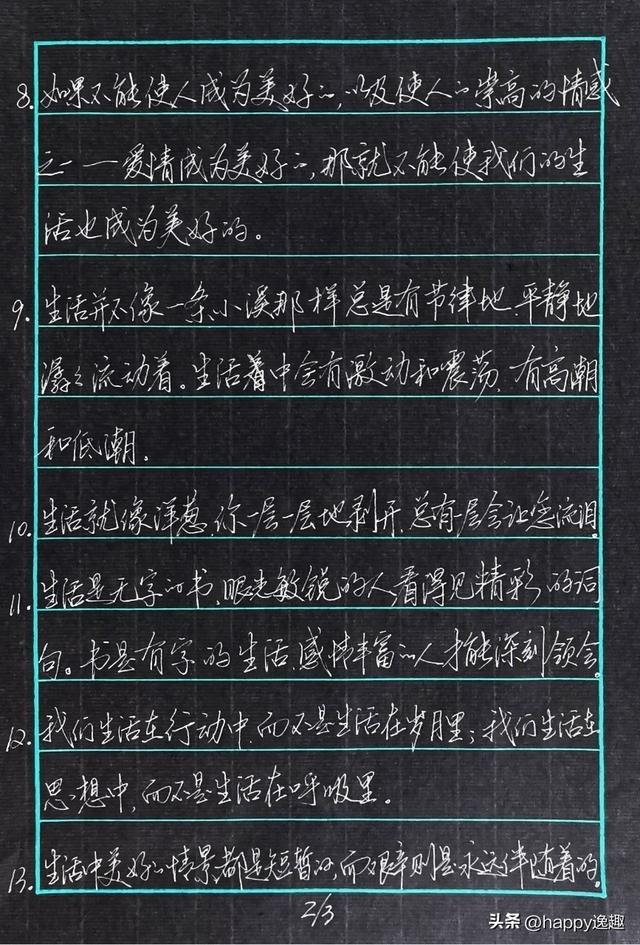 8. 如果不能使人成为美好的,以及使人的崇高的情感
之一——爱情成为美好的,那就不能使我们的生
活也成为美好的。
9. 生活并不像一条小溪那样总是有节律地、平静地
潺潺流动着。生活着中会有激动和震荡,有高潮
和低潮。
10. 生活就像洋葱,你一层一层地剥开,总有一层会让您流泪。
11. 生活是无字的书,眼光敏锐的人看得见精彩的词
句。书是有字的生活,感情丰富的人才能深刻领会。
12. 我们生活在行动中,而不是生活在岁月里;我们生活在
思想中,而不是生活在呼吸里。
13. 生活中美好的情景都是短暂的,而艰辛则是永远伴随着的。
2/3
头条 @happy逸趣